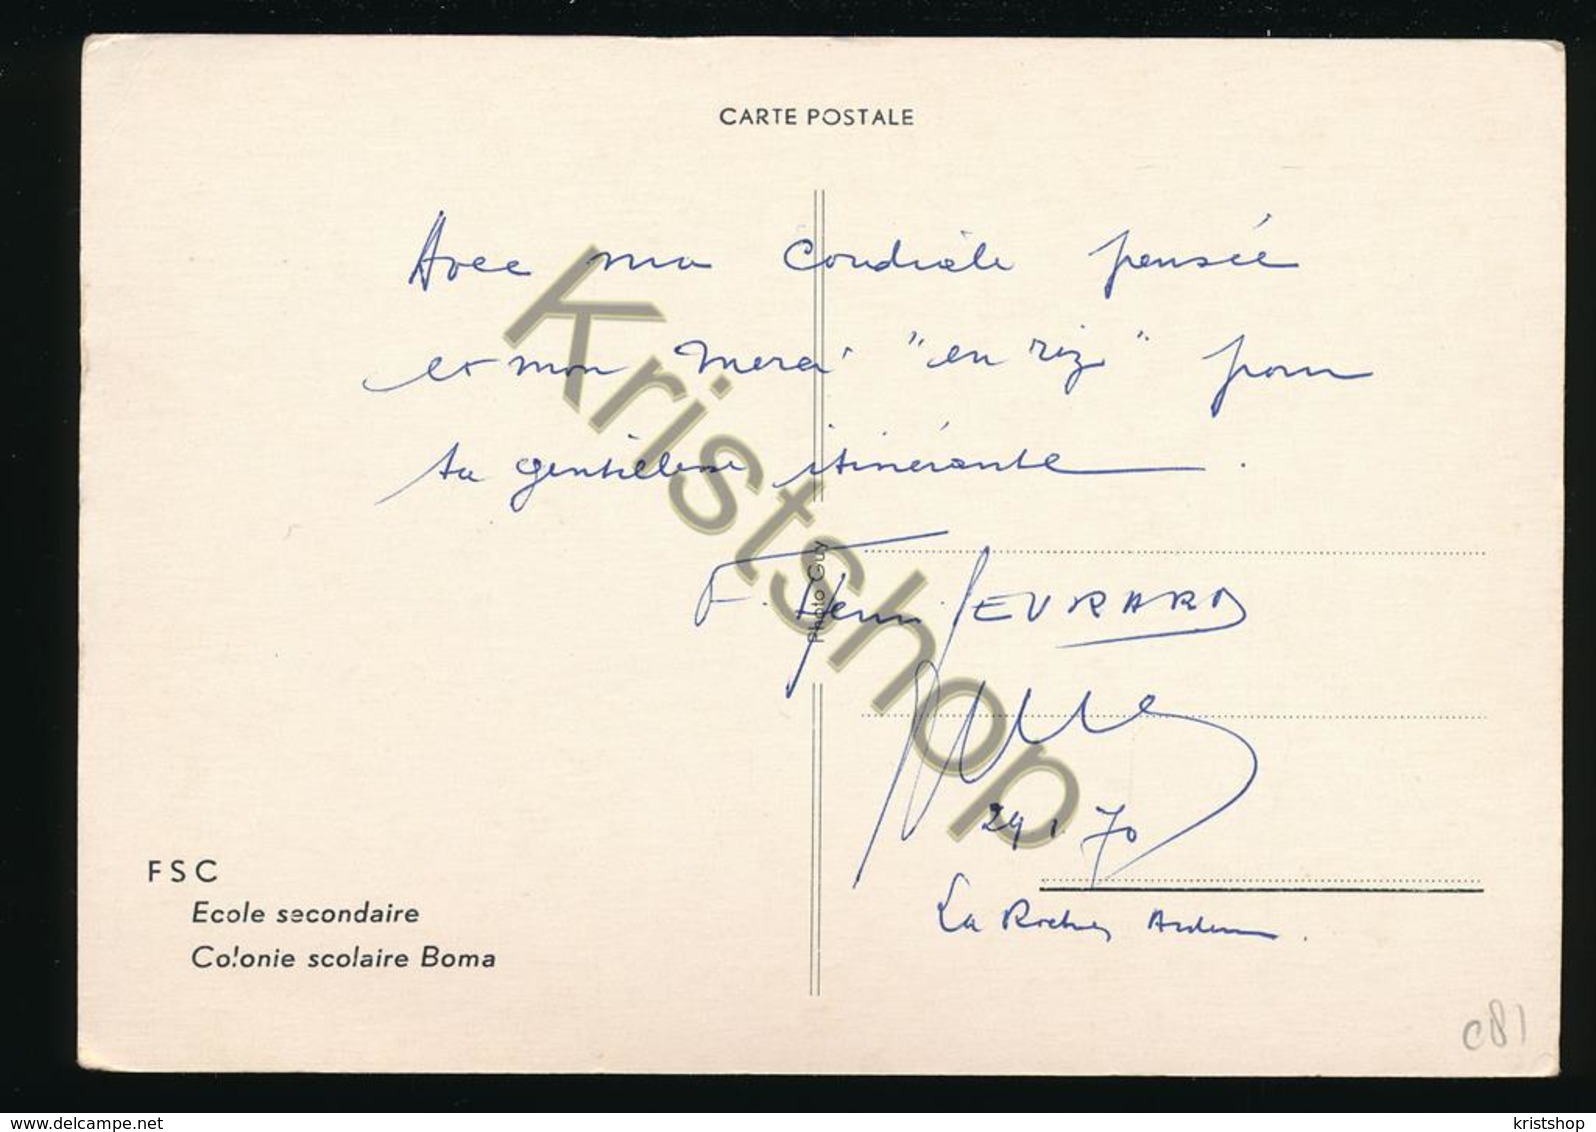 CARTE POSTALE
Avec ma cordiale pensée
et mon merci "en riz" pour
ta gentillesse itinérante.
Photo Guy
F. Henri JEVRARD
29 1. 70
La Roche, Ardenne.
FSC
Ecole secondaire
Colonie scolaire Boma
C81
Kristshop
www.delcampe.net
kristshop